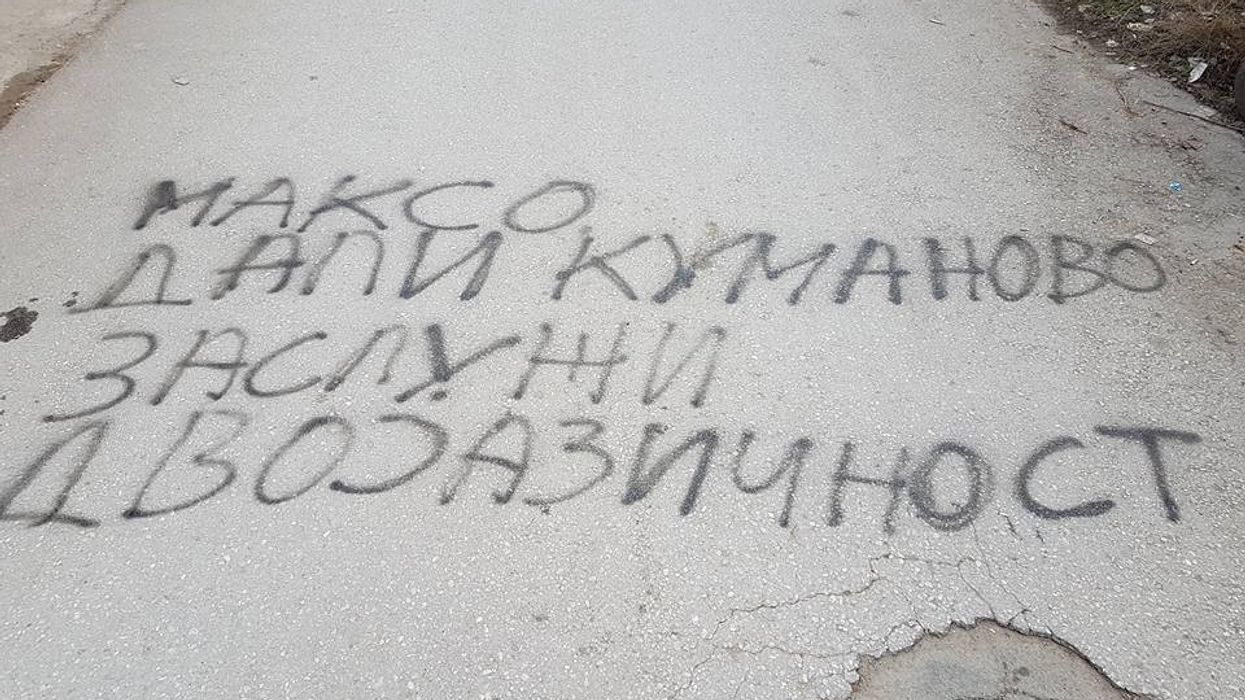 МАКСО
ДАПИ КУМАНОВО
ЗАСЛУЖИ
ДВОЈАЗИЧНОСТ